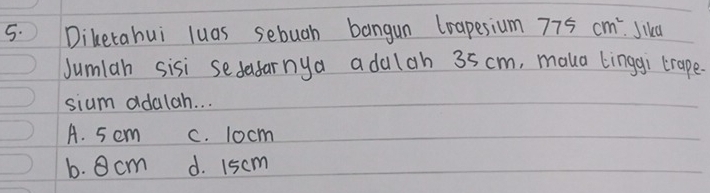 5. Diketahui luas sebuah bangun trapesium 775 cm². Jika
Jumlah sisi sejajarnya adalah 35 cm, maka tinggi trape-
sium adalah...
A. 5 cm C. 10cm
b. 8 cm d. 15cm